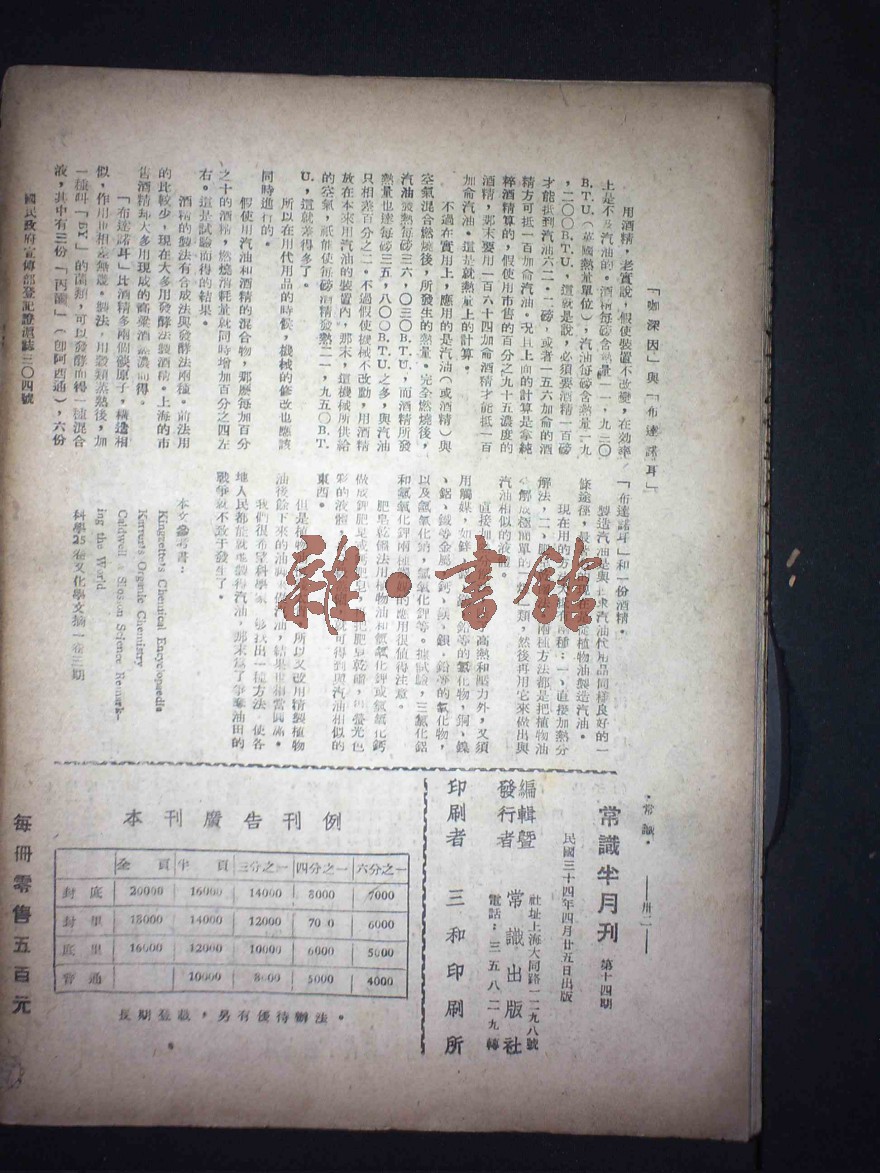 ・常識・
——卅二——
「咖深因」與「布達諾耳」
用酒精，老實說，假使裝置不改變，在效率
上是不及汽油的。酒精每磅含熱量一一，九二〇
B.T.U.（英國熱量單位），汽油每磅含熱量一九
，二〇〇B.T.U，這就是說，必須要酒精一百磅
才能抵到汽油六二・二磅，或者一五六加侖的酒
精方可抵一百加侖汽油。況且上面的計算是拿純
粹酒精算的，假使用市售的百分之九十五濃度的
酒精，那末要用一百六十四加侖酒精才能抵一百
加侖汽油。這是就熱量上的計算。
不過在實用上，應用的是汽油（或酒精）與
空氣混合燃燒後，所發生的熱量。完全燃燒後，
汽油發熱每磅三六，〇三〇B.T.U，而酒精所發
熱量也達每磅三五，八〇〇B.T.U.之多，與汽油
只相差百分之二。不過假使機械不改動，用酒精
放在本來用汽油的裝置內，那末，這機械所供給
的空氣，祇能使每磅酒精發熱二一，九五〇B.T.
U，這就差得多了。
所以在用代用品的時候，機械的修改也應該
同時進行的。
假使用汽油和酒精的混合物，那麼每加百分
之十的酒精，燃燒消耗量就同時增加百分之四左
右。這是試驗而得的結果。
酒精的製法有合成法與發酵法兩種。前法用
的比較少，現在大多用發酵法製酒精。上海的市
售酒精却大多用現成的高粱酒蒸濃而得。
「布達諾耳」比酒精多兩個碳原子，構造相
似，作用也相差無幾。製法，用穀類蒸熟後，加
一種叫「BY」的菌類，可以發酵而得一種混合
液，其中有三份「丙酮」（卽阿西通），六份
「布達諾耳」和一份酒精。
製造汽油是與尋求汽油代用品同樣良好的一
條途徑，最
植物油製造汽油。
現在用的方
兩種：一、直接加熱分
解法，二、
兩種方法都是把植物油
分解成極簡單的
一類，然後再用它來做出與
汽油相似的液體。
直接
高熱和壓力外，又須
用觸媒，如鋅
鉛等的氯化物，銅、鎳
、鋁、鐵等金屬
鈣、鎂、鋇、鉛等的氧化物，
以及氫氧化鈉，氫氧化鉀等。據試驗，三氯化鋁
和氫氧化鉀兩種觸媒的應用很值得注意。
肥皂乾餾法用植物油和氫氧化鉀或氫氧化鈣
做成鉀肥皂或鈣肥皂
把肥皂乾餾，由螢光色
彩的液體，
就可得到與汽油相似的
東西。
但是植物油
，所以又改用精製植物
油後餘下來的油
做汽油，結果也相當圓滿。
我們很希望科學家
夠找出一種方法，使各
地人民都能就地製得汽油，那末爲了爭奪油田的
戰爭就不致于發生了。
本文參考書：
Kingzette's Chemical Encyclopaedia
Karrer's Organic Chemistry
Caldwell & Slosson Science Remak-
ing the World
科學25卷又化學文摘一卷三期
國民政府宣傳部登記證滬誌三〇四號
常識半月刊 第十四期
民國三十四年四月廿五日出版
編輯暨
發行者 常識出版社
社址上海大同路一二九八號
電話：三五八二九轉
印刷者 三和印刷所
本刊廣告刊例
全頁 半頁 三分之一 四分之一 六分之一
封底 20000 16000 14000 8000 7000
封裏 18000 14000 12000 70 0 6000
底裏 16000 12000 10000 6000 5000
普通 10000 8000 5000 4000
長期登載，另有優待辦法。
每冊零售五百元
雜・書館